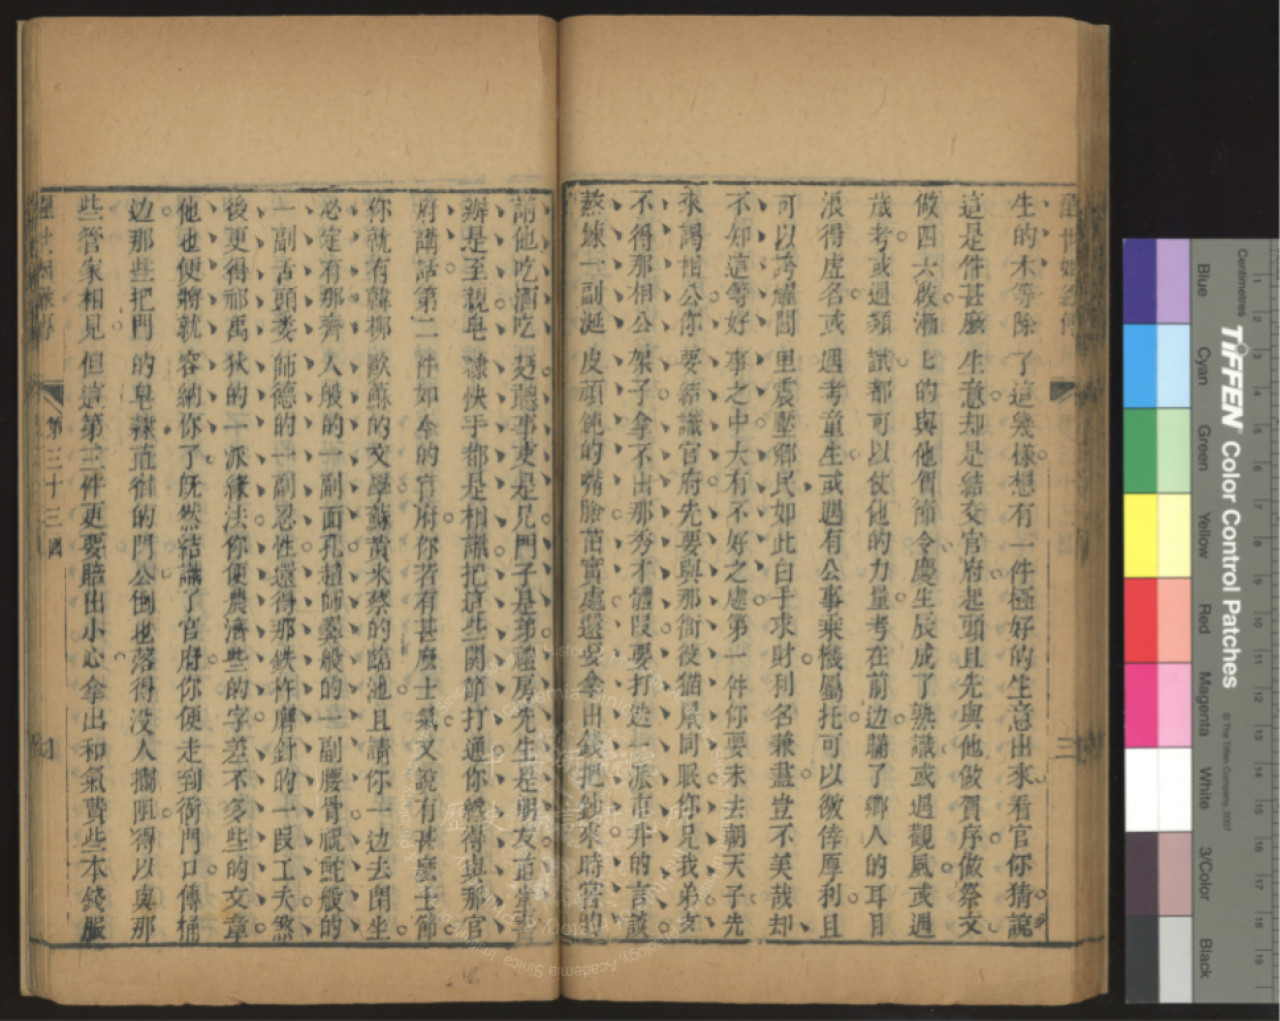 醒世姻緣傳
三
生的木等除了這幾樣想有一件極好的生意出來看官你猜說
這是件甚麼生意却是結交官府起頭且先與他做賀序做祭文
做四六啟漸上的與他賀節令慶生辰成了熟識或遇觀風或遇
歲考或遇類試都可以使他的力量考在前边瞞了鄉人的耳目
浪得虛名或遇考童生或遇有公事乘機屬托可以徼倖厚利且
可以誇耀閭里震壓鄉民如此白手求財利名兼盡豈不美哉却
不知這等好事之中大有不好之處第一件你要未去朝天子先
來謁相公你要結識官府先要與那衙役猫鼠同眠你兄我弟支
不得那相公架子拿不出那秀才體叚要打造一派市井的言談
熬煉一副涎皮頑鈍的嘴臉茁實處還要拿出錢把鈔來時常的
請他吃酒吃麪聽事吏是兄門子是弟禮房先生是朋友直堂書
辦是至親皂隸快手都是相識把這些関節打通你纔得與那官
府講話第二件如今的官府你若有甚麽士氣又說有甚麽士節
你就有韓柳歐蘇的文學蘇黃米蔡的臨池且請你一边去閑坐
必定有那齊人般的一副面孔趙師𢍰般的一副腰骨祝鮀般的
一副舌頭婁師德的一副忍性還得那鉄杵磨針的一叚工夫然
後更得祁禹狄的一派緣法你便農濟些的字差不多些的文章
他也便將就容納你了旣然結識了官府你便走到衙門口傳桶
边那些把門的皂隸直宿的門公倒也落得没人攔阻得以與那
些管家相見但這第三件更要賠出小心拿出和氣費些本錢服
第三十三囘
Centimetres
TIFFEN Color Control Patches
© The Tiffen Company, 2007
Blue
Cyan
Green
Yellow
Red
Magenta
White
3/Color
Black